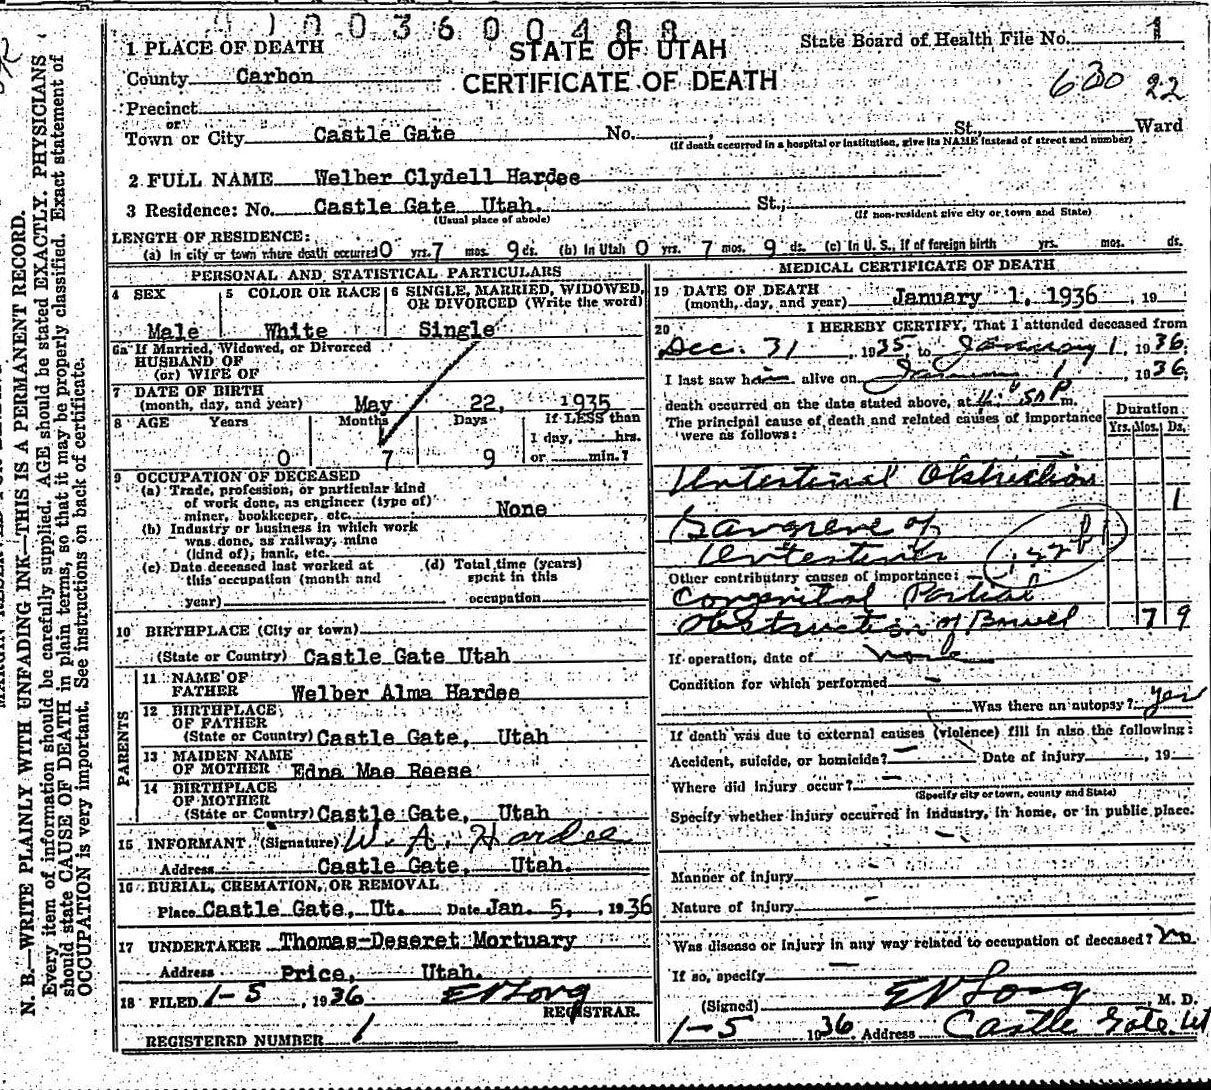 0 1 0 0 3 6 0 0 4 8 8
STATE OF UTAH
CERTIFICATE OF DEATH
State Board of Health File No. 1
630 22
1 PLACE OF DEATH
County Carbon
Precinct
or
Town or City Castle Gate No. , St., Ward
(If death occurred in a hospital or institution, give its NAME instead of street and number)
2 FULL NAME Welber Clydell Hardee
3 Residence: No. Castle Gate Utah. St.,
(Usual place of abode) (If non-resident give city or town and State)
LENGTH OF RESIDENCE:
(a) In city or town where death occurred 0 yrs. 7 mos. 9 ds. (b) In Utah 0 yrs. 7 mos. 9 ds. (c) In U. S., if of foreign birth yrs. mos. ds.
PERSONAL AND STATISTICAL PARTICULARS
4 SEX 5 COLOR OR RACE 6 SINGLE, MARRIED, WIDOWED,
OR DIVORCED (Write the word)
Male White Single
6a If Married, Widowed, or Divorced
HUSBAND OF
(or) WIFE OF
7 DATE OF BIRTH
(month, day, and year) May 22, 1935
8 AGE Years Months Days If LESS than
1 day, hrs.
0 7 9 or min.?
9 OCCUPATION OF DECEASED
(a) Trade, profession, or particular kind
of work done, as engineer (type of)
miner, bookkeeper, etc. None
(b) Industry or business in which work
was done, as railway, mine
(kind of); bank, etc.
(c) Date deceased last worked at (d) Total time (years)
this occupation (month and spent in this
year) occupation
10 BIRTHPLACE (City or town)
(State or Country) Castle Gate Utah
PARENTS
11 NAME OF
FATHER Welber Alma Hardee
12 BIRTHPLACE
OF FATHER
(State or Country) Castle Gate, Utah
13 MAIDEN NAME
OF MOTHER Edna Mae Reese
14 BIRTHPLACE
OF MOTHER
(State or Country) Castle Gate, Utah
15 INFORMANT (Signature) W. A. Hardee
Address Castle Gate, Utah.
16 BURIAL, CREMATION, OR REMOVAL
Place Castle Gate, Ut. Date Jan. 5, 1936
17 UNDERTAKER Thomas-Deseret Mortuary
Address Price, Utah.
18 FILED 1-5, 1936 E V Long
REGISTRAR.
REGISTERED NUMBER 1
MEDICAL CERTIFICATE OF DEATH
19 DATE OF DEATH
(month, day, and year) January 1, 1936, 19
20 I HEREBY CERTIFY, That I attended deceased from
Dec. 31, 1935, to January 1, 1936.
I last saw him alive on January 1, 1936.
death occurred on the date stated above, at m.
The principal cause of death and related causes of importance
were as follows:
Duration
Yrs. Mos. Ds.
Intestinal Obstruction
1
Gangrene of
Intestines
122 b1
Other contributory causes of importance:
Congenital Partial
Obstruction of Bowel 7 9
If operation, date of none
Condition for which performed
Was there an autopsy? yes
If death was due to external causes (violence) fill in also the following:
Accident, suicide, or homicide? Date of injury , 19
Where did injury occur?
(Specify city or town, county and State)
Specify whether injury occurred in industry, in home, or in public place.
Manner of injury
Nature of injury
Was disease or injury in any way related to occupation of deceased? No
If so, specify
(Signed) E V Long, M. D.
1-5 1936. Address Castle Gate, Ut
N. B.—WRITE PLAINLY WITH UNFADING INK—THIS IS A PERMANENT RECORD.
Every item of information should be carefully supplied. AGE should be stated EXACTLY. PHYSICIANS
should state CAUSE OF DEATH in plain terms, so that it may be properly classified. Exact statement of
OCCUPATION is very important. See instructions on back of certificate.